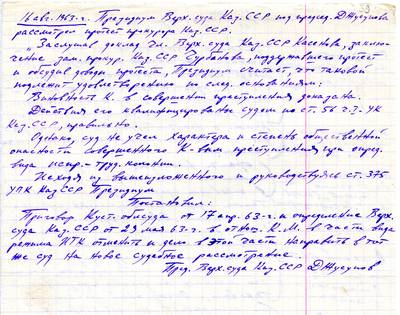 16 авг. 1963 г. Президиум Верх. суда Каз. ССР под председ. Джусупова
рассмотрел протест прокурора Каз. ССР.
„Заслушав доклад Чл. Верх. суда Каз. ССР Касенова, заклю-
чение зам. прокур. Каз. ССР, поддержавшего протест
и обсудив доводы протеста, Президиум считает, что таковой
подлежит удовлетворению по след. основаниям:
Виновность К. в совершении преступления доказана.
Действия его квалифицированы судом по ст. 56 ч. УК
Каз. ССР, правильно.
Однако, суд не учел характера и степень общественной
опасности совершенного К-вым преступления при опред.
вида испр.-труд. колонии.
Исходя из вышеизложенного и руководствуясь ст. 375
УПК Каз ССР Президиум
Постановил:
Приговор Куст. облсуда от 17 апр. 63-г. и определение Верх.
суда Каз. ССР от 29 мая 63-г. в отнош. К.М. в части вида
режима ИТК отменить и дело в этой части направить в тот
же суд на новое судебное рассмотрение.
Пред. Верх. суда Каз. ССР Джусупов